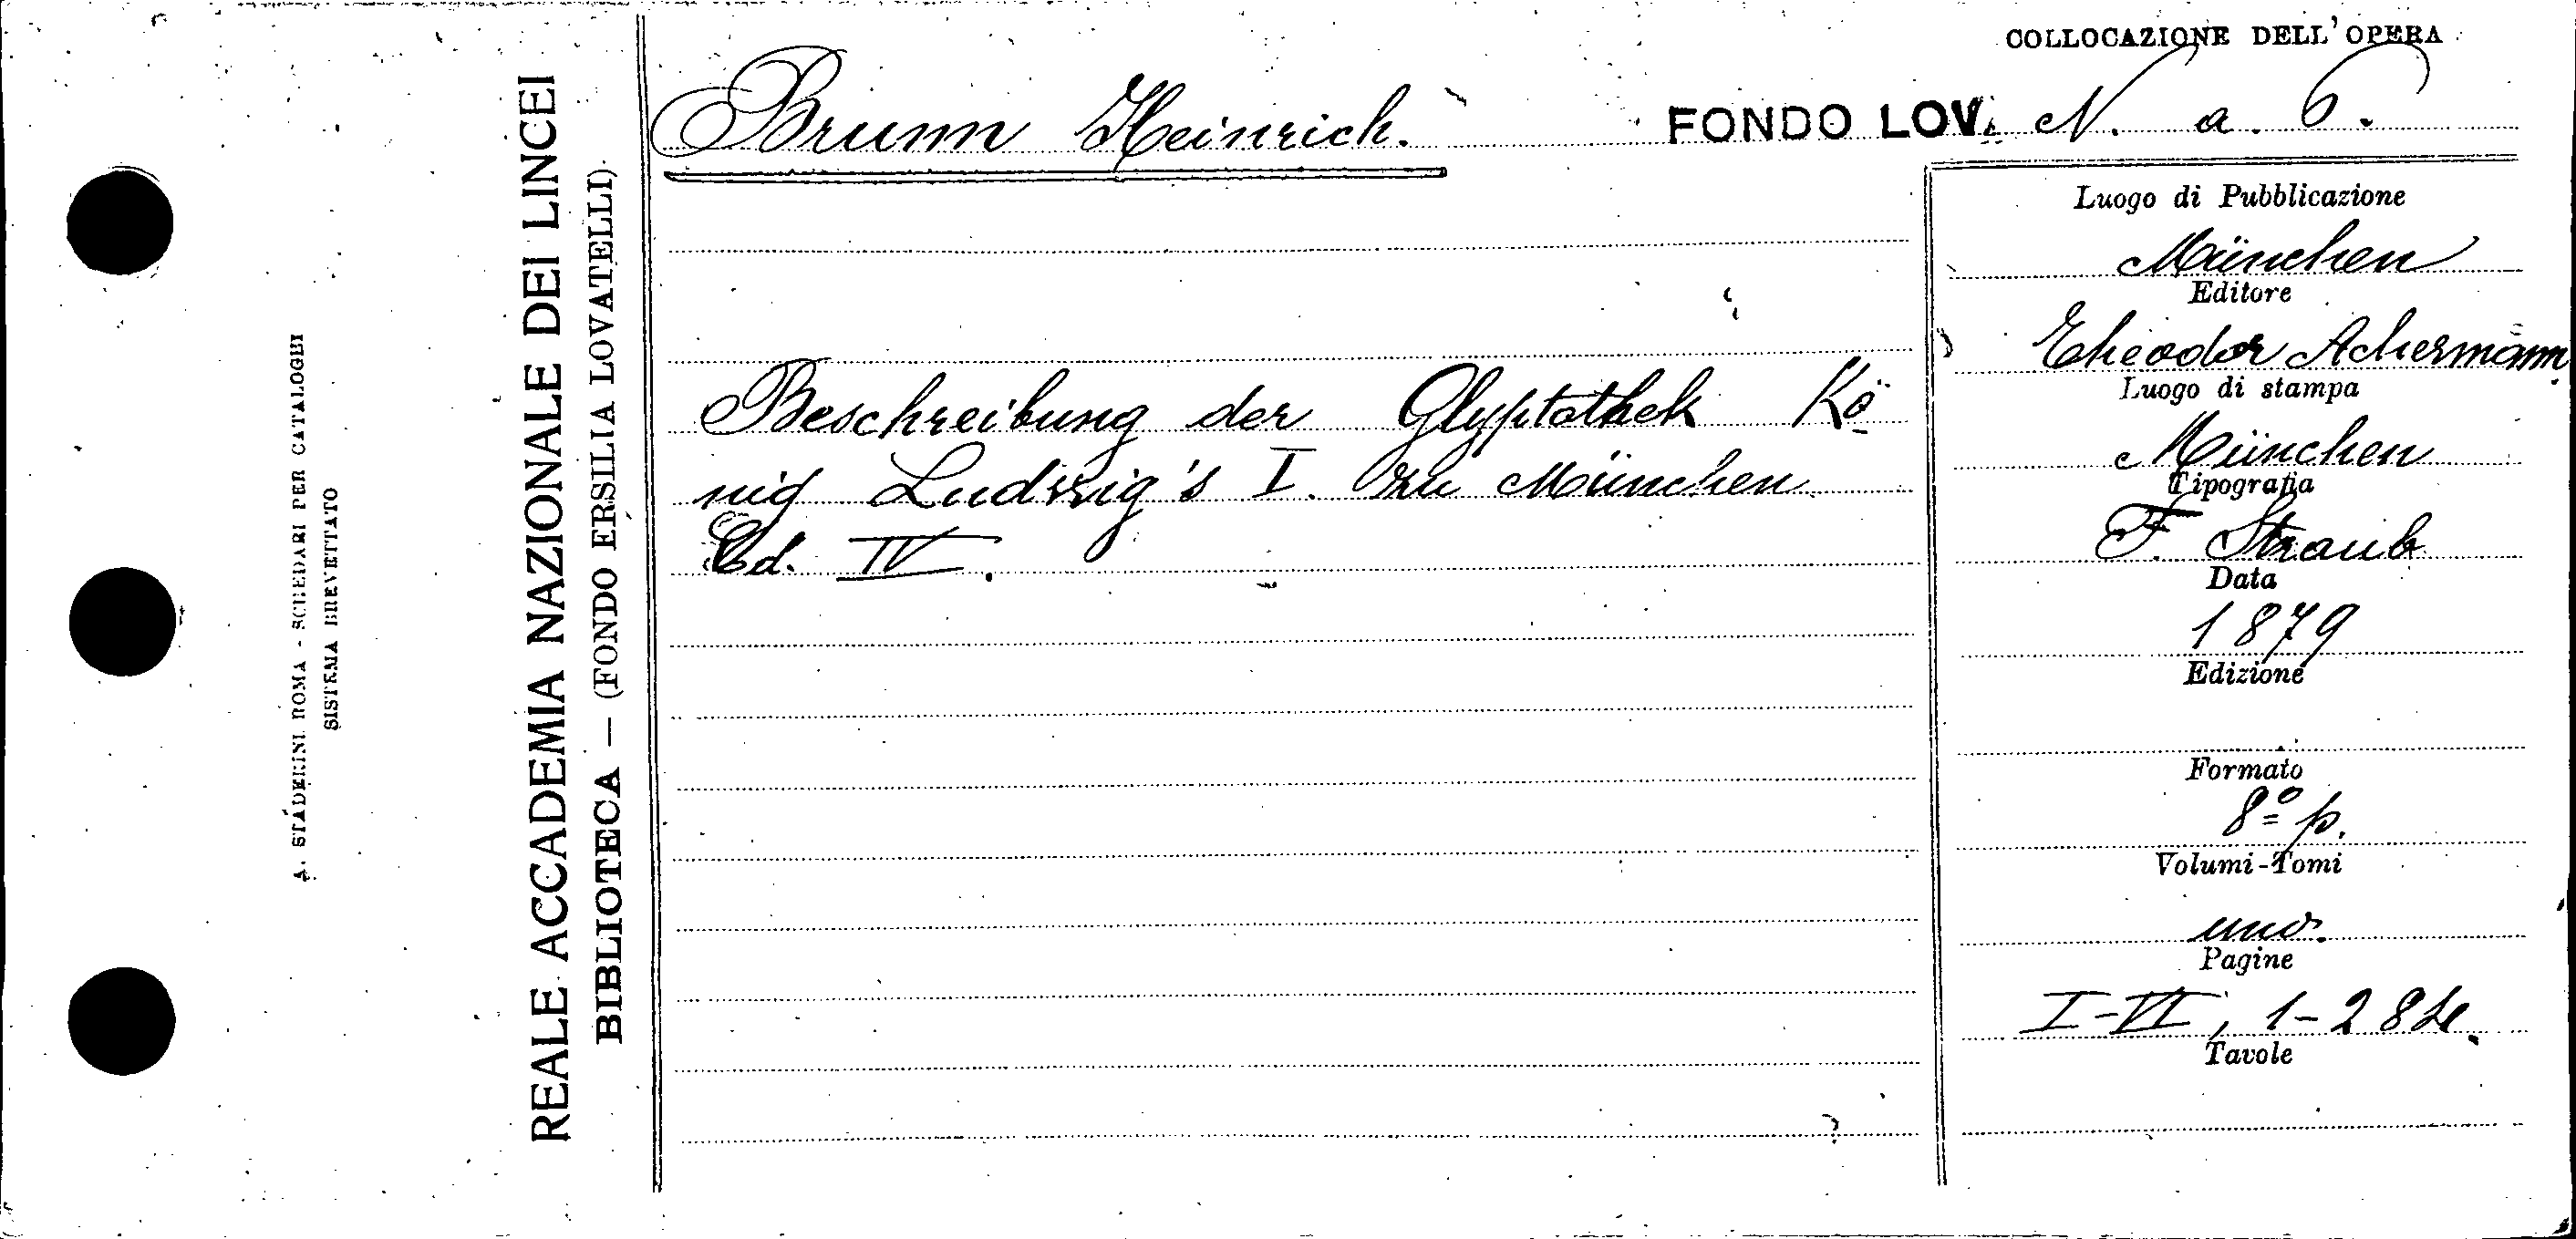 COLLOCAZIONE DELL'OPERA
Brunn Heinrich.
FONDO LOV. N. a. 6.
Beschreibung der Glyptothek Kö-
nig Ludwig's I. zu München
Ed. IV.
Luogo di Pubblicazione
München
Editore
Theodor Achermann
Luogo di stampa
München
Tipografia
F. Straub
Data
1879
Edizione
Formato
8º p.
Volumi-Tomi
uno.
Pagine
I-VI, 1-284.
Tavole
REALE ACCADEMIA NAZIONALE DEI LINCEI
BIBLIOTECA — (FONDO ERSILIA LOVATELLI)
A. STADERINI ROMA - SCHEDARI PER CATALOGHI
SISTEMA BREVETTATO